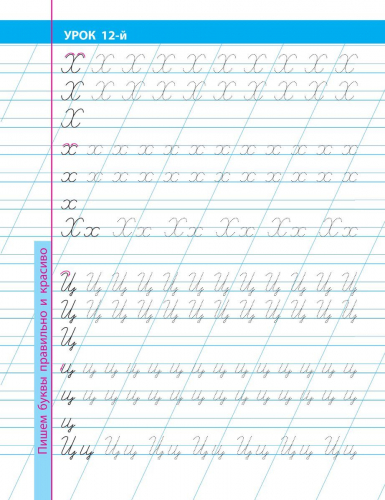 УРОК 12-й
Х Х Х Х Х Х Х Х Х Х Х
Х Х Х Х Х Х Х Х Х Х Х
Х
х х х х х х х х х х х х
х х х х х х х х х х х х
х
Хх Хх Хх Хх Хх Хх
Ц Ц Ц Ц Ц Ц Ц Ц Ц Ц Ц Ц
Ц Ц Ц Ц Ц Ц Ц Ц Ц Ц Ц Ц
Ц
ц ц ц ц ц ц ц ц ц ц ц ц ц ц
ц ц ц ц ц ц ц ц ц ц ц ц ц ц
ц
Цц Цц Цц Цц Цц Цц Цц
Пишем буквы правильно и красиво